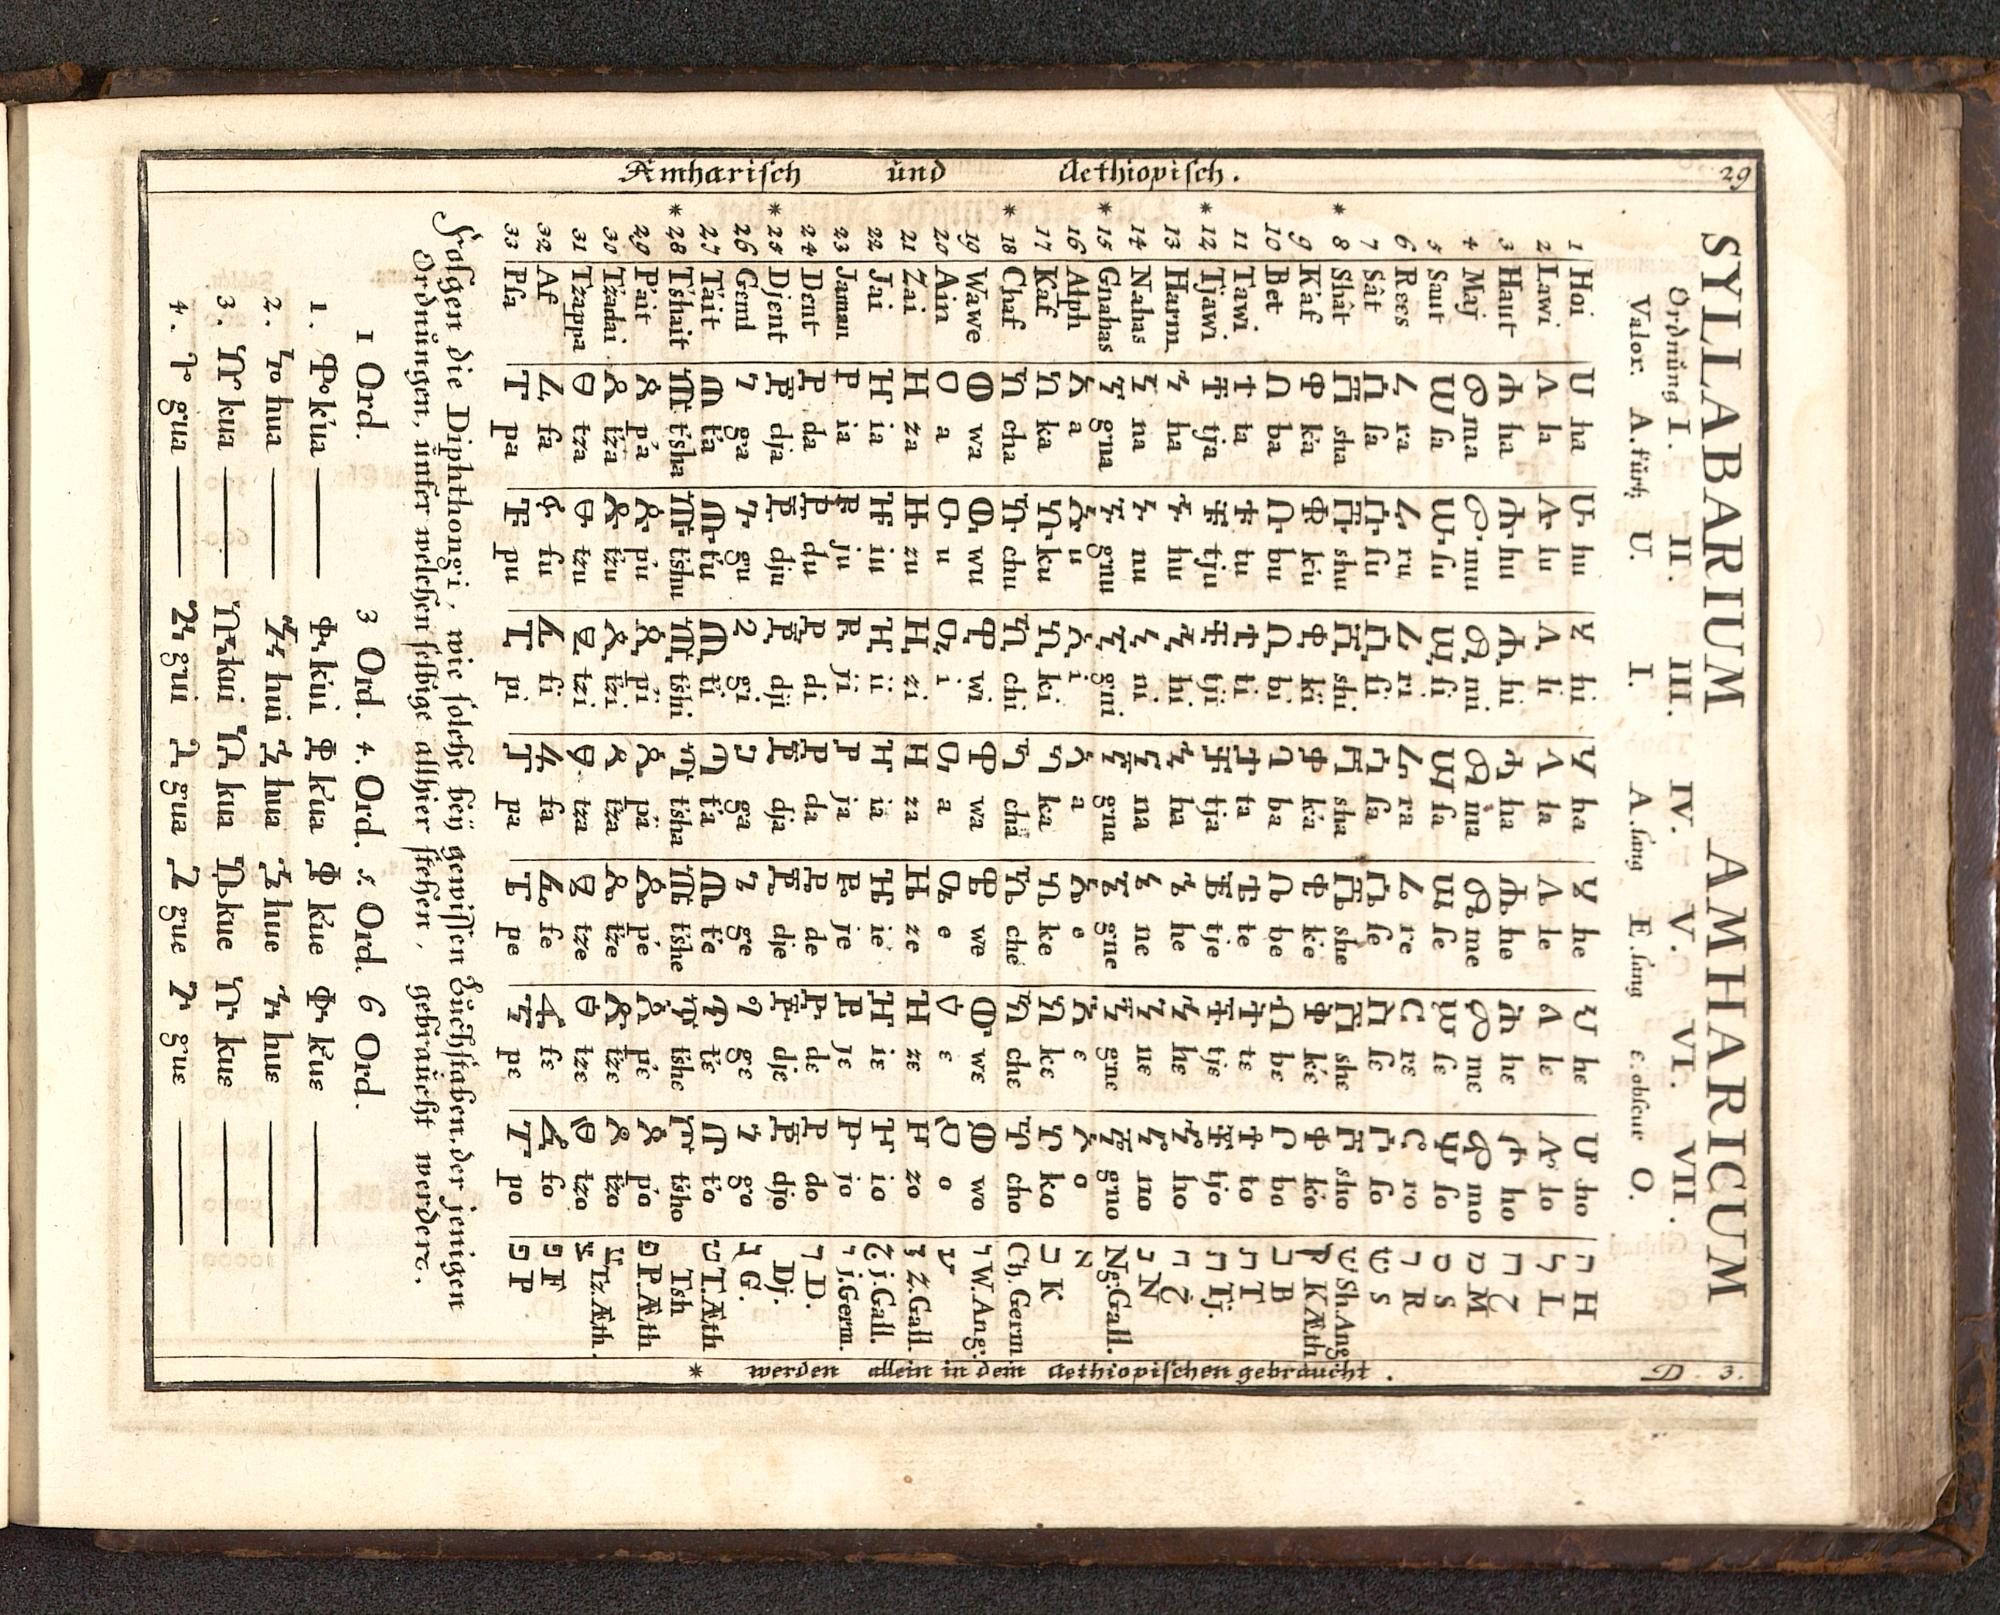 Amharisch und Aethiopisch.
29
SYLLABARIUM AMHARICUM
Ordnung I. II. III. IV. V. VI. VII.
Valor. A. kurtz U. I. A. lang E. lang ε. obscur O.
1 Hoi ሀ ha ሁ hu ሂ hi ሃ ha ሄ he ህ hε ሆ ho ה H
2 Lawi ለ la ሉ lu ሊ li ላ la ሌ le ል lε ሎ lo ל L
3 Haut ሐ ha ሑ hu ሒ hi ሓ ha ሔ he ሕ hε ሖ ho ח
4 Maj መ ma ሙ mu ሚ mi ማ ma ሜ me ም mε ሞ mo מ M
5 Saut ሠ sa ሡ su ሢ si ሣ sa ሤ se ሥ sε ሦ so ס S
6 Rees ረ ra ሩ ru ሪ ri ራ ra ሬ re ር rε ሮ ro ר R
7 Sât ሰ sa ሱ su ሲ si ሳ sa ሴ se ስ sε ሶ so ש S
* 8 Shât ሸ sha ሹ shu ሺ shi ሻ sha ሼ she ሽ shε ሾ sho ש Sh. Ang
9 K'af ቀ k'a ቁ k'u ቂ k'i ቃ k'a ቄ k'e ቅ k'ε ቆ k'o ק K Æth
10 Bet በ ba ቡ bu ቢ bi ባ ba ቤ be ብ bε ቦ bo ב B
11 Tawi ተ ta ቱ tu ቲ ti ታ ta ቴ te ት tε ቶ to ת T
* 12 Tjawi ቸ tja ቹ tju ቺ tji ቻ tja ቼ tje ች tjε ቾ tjo ת Tj.
13 Harm ኀ ha ኁ hu ኂ hi ኃ ha ኄ he ኅ hε ኆ ho ח
14 Nahas ነ na ኑ nu ኒ ni ና na ኔ ne ን nε ኖ no נ N
* 15 Gnahas ኘ gna ኙ gnu ኚ gni ኛ gna ኜ gne ኝ gnε ኞ gno Ng: Gall.
16 Alph አ a ኡ u ኢ i ኣ a ኤ e እ ε ኦ o א
17 Kaf ከ ka ኩ ku ኪ ki ካ ka ኬ ke ክ kε ኮ ko כ K
* 18 Chaf ኸ cha ኹ chu ኺ chi ኻ cha ኼ che ኽ chε ኾ cho Ch. Germ
19 Wawe ወ wa ዉ wu ዊ wi ዋ wa ዌ we ው wε ዎ wo ו W. Ang:
20 Ain ዐ a ዑ u ዒ i ዓ a ዔ e ዕ ε ዖ o ע
21 Zai ዘ za ዙ zu ዚ zi ዛ za ዜ ze ዝ zε ዞ zo ז Z. Gall.
22 Jai ዠ ia ዡ iu ዢ ii ዣ ia ዤ ie ዥ iε ዦ io j. Gall.
23 Jaman የ ia ዩ ju ዪ ji ያ ja ዬ je ይ jε ዮ jo י j. Germ.
24 Dent ደ da ዱ du ዲ di ዳ da ዴ de ድ dε ዶ do ד D.
* 25 Djent ጀ dja ጁ dju ጂ dji ጃ dja ጄ dje ጅ djε ጆ djo Dj.
26 Geml ገ ga ጉ gu ጊ gi ጋ ga ጌ ge ግ gε ጎ go ג G.
27 T'ait ጠ t'a ጡ t'u ጢ t'i ጣ t'a ጤ t'e ጥ t'ε ጦ t'o ט T. Æth
* 28 T'shait ጨ t'sha ጩ t'shu ጪ t'shi ጫ t'sha ጬ t'she ጭ t'shε ጮ t'sho Tsh
29 P'ait ጰ p'a ጱ p'u ጲ p'i ጳ p'a ጴ p'e ጵ p'ε ጶ p'o פ P. Æth
30 T'zadai ጸ t'za ጹ t'zu ጺ t'zi ጻ t'za ጼ t'ze ጽ t'zε ጾ t'zo צ Tz. Æth.
31 Tzappa ፀ tza ፁ tzu ፂ tzi ፃ tza ፄ tze ፅ tzε ፆ tzo צ
32 Af ፈ fa ፉ fu ፊ fi ፋ fa ፌ fe ፍ fε ፎ fo פ F
33 Psa ፐ pa ፑ pu ፒ pi ፓ pa ፔ pe ፕ pε ፖ po פ P
Folgen die Diphthongi, wie solche beÿ gewissen Buchstaben, der jenigen
Ordnungen, unter welchen selbige allhier stehen, gebraucht werden.
1 Ord. 3 Ord. 4. Ord. 5. Ord. 6 Ord.
1. ቈ k'ua — ቊ k'ui ቋ k'ua ቌ k'ue ቍ k'uε —
2. ኈ hua — ኊ hui ኋ hua ኌ hue ኍ huε —
3. ኰ kua — ኲ kui ኳ kua ኴ kue ኵ kuε —
4. ጐ gua — ጒ gui ጓ gua ጔ gue ጕ guε —
* werden allein in dem Aethiopischen gebraucht.
D. 3.